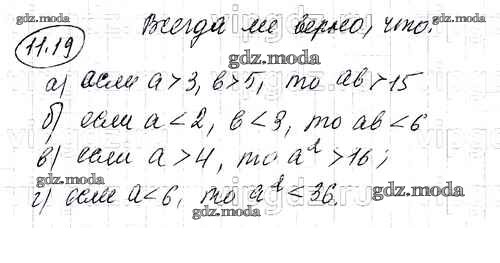 11.19 Всегда ли верно, что:
gdz.moda
gdz.moda
а) если a > 3, b > 5, то ab > 15
б) если a < 2, b < 3, то ab < 6
в) если a > 4, то a² > 16;
gdz.moda
г) если a < 6, то a² < 36.
gdz.moda